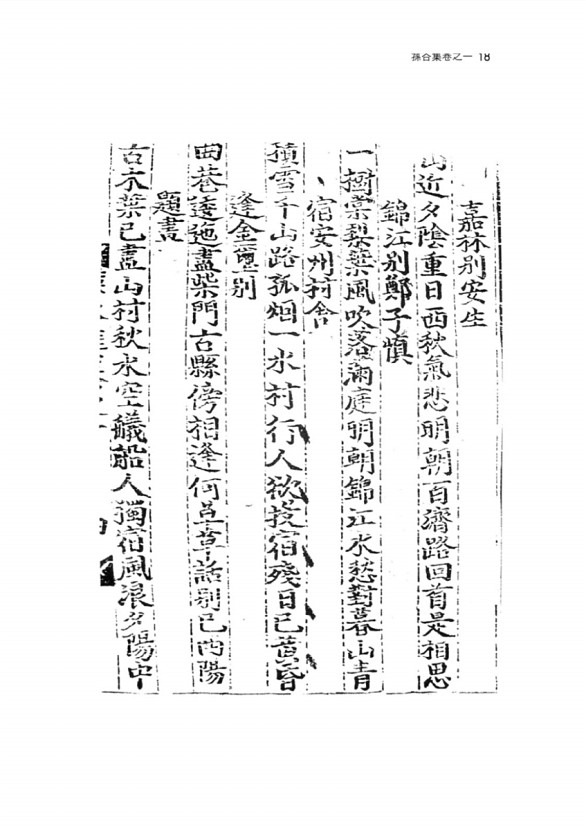 孫谷集卷之一 18
嘉林別安生
山近夕陰重日西秋氣悲明朝百濟路回首是相思
錦江別鄭子愼
一樹棠梨葉風吹落滿庭明朝錦江水愁對暮山青
宿安州村舍
積雪千山路孤烟一水村行人欲投宿殘日已黃昏
逢金別
曲巷逶迤盡柴門古縣傍相逢何草草話別已西陽
題畫
古木葉已盡山村秋水空艤船人獨宿風浪夕陽中